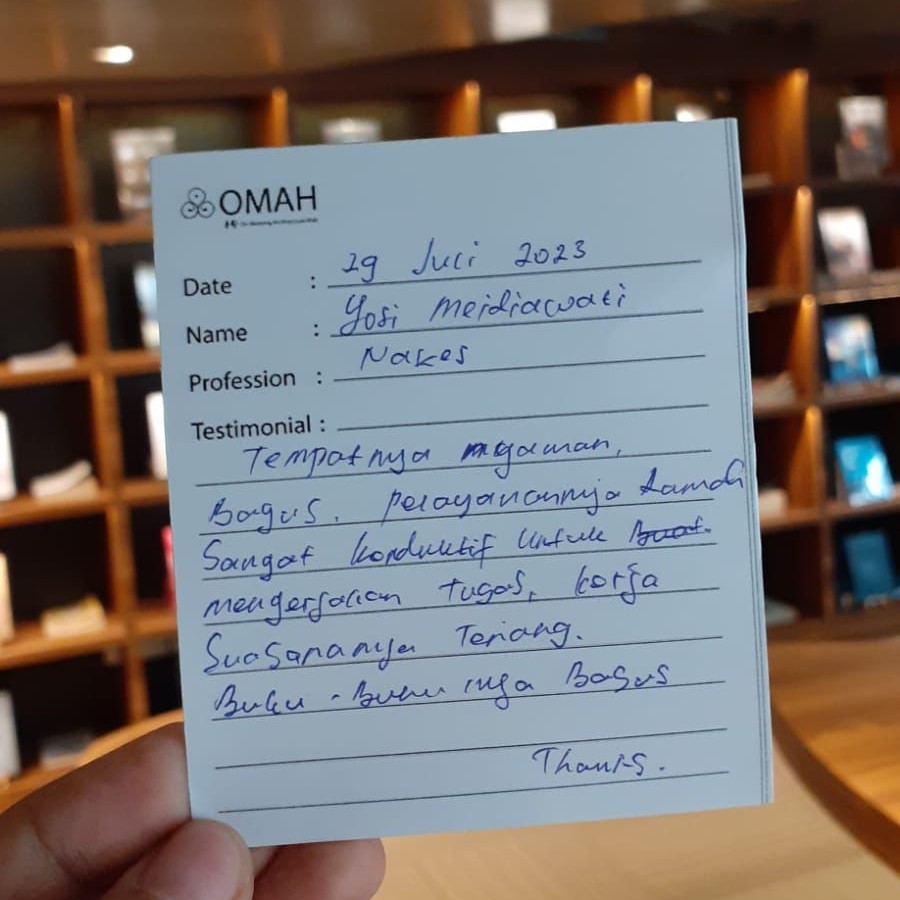 OMAH
Date : 29 Juli 2023
Name : Yosi Meidiawati
Profession : Nakes
Testimonial :
Tempatnya nyaman,
Bagus. pelayanannya Ramah
Sangat konduktif untuk Buat.
mengerjakan tugas, kerja
Suasananya Tenang.
Buku - Bukunya Bagus
Thanks.